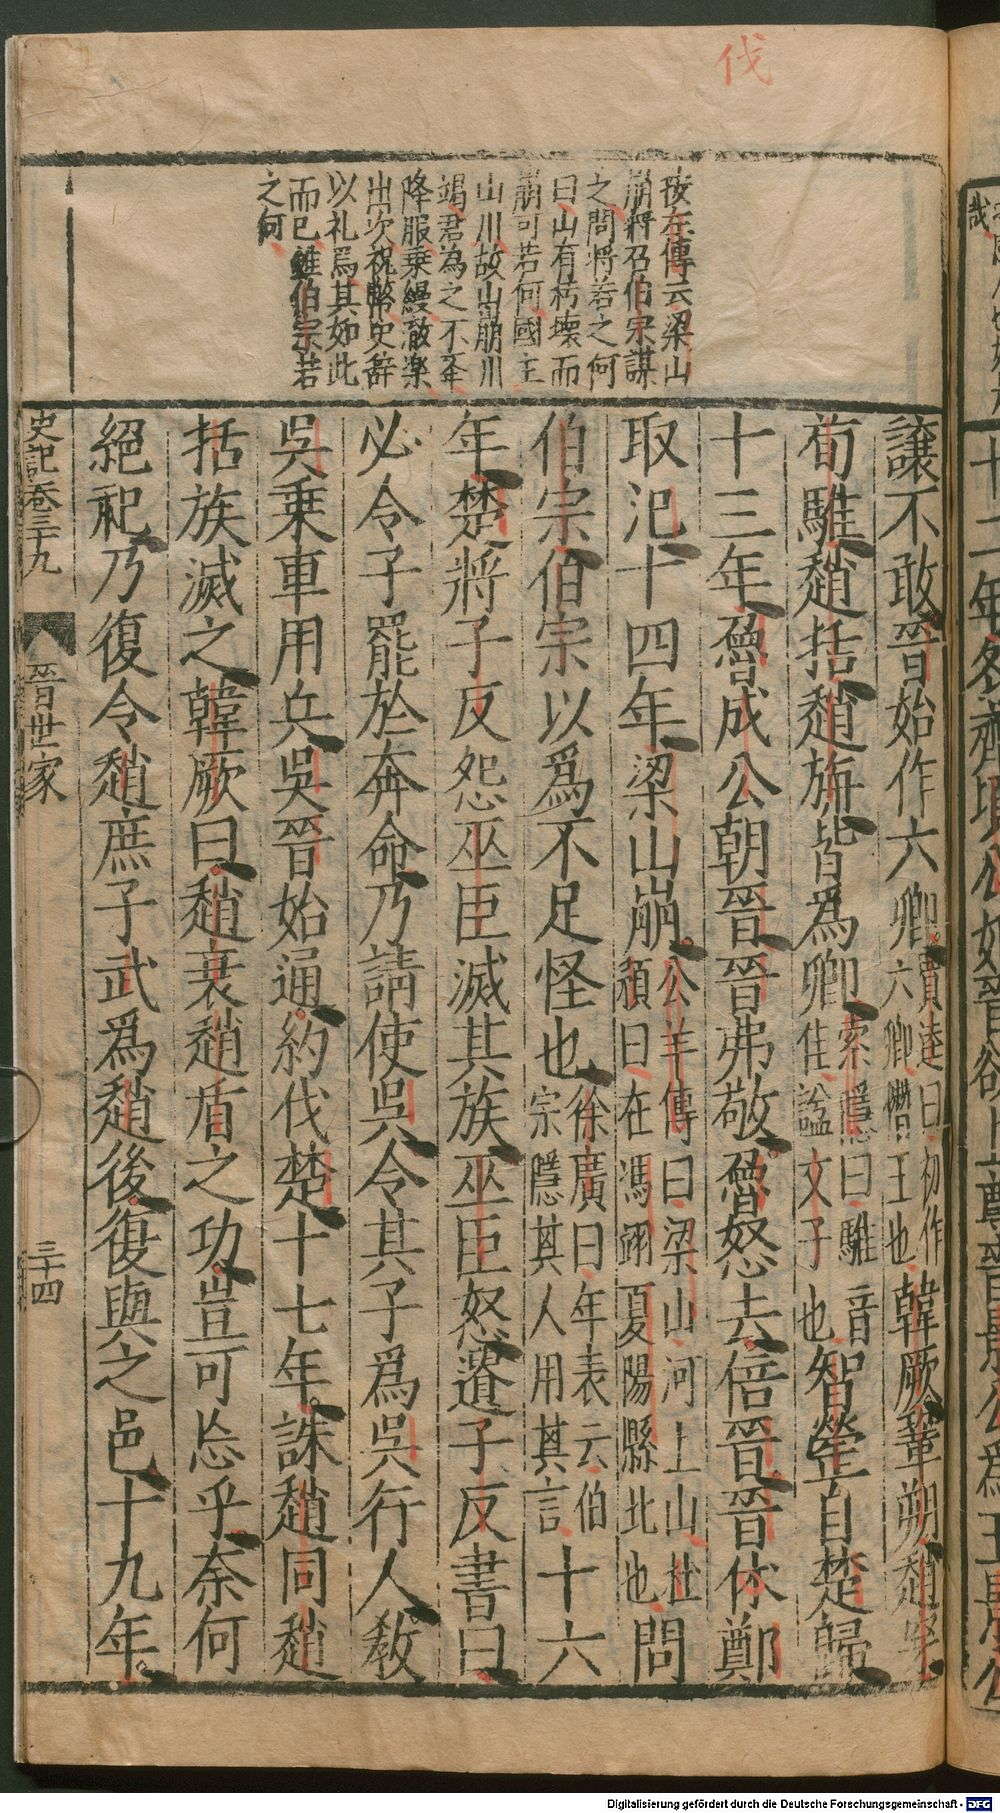 伐
按左傳云梁山
崩將召伯宗謀
之問將若之何
曰山有朽壤而
崩可若何國主
山川故山崩川
竭君為之不舉
降服乗縵澈楽
出次祝幣史辞
以礼焉其如此
而已雖伯宗若
之何
讓不敢晉始作六卿賈逵曰初作六卿僭王也韓厥鞏朔趙穿
荀騅趙括趙旃皆爲卿索隱曰騅音隹謚文子也智罃自楚歸
十三年魯成公朝晉晉弗敬魯怒去倍晉晉伐鄭
取汜十四年梁山崩公羊傳曰梁山河上山杜預曰在馮翊夏陽縣北也問
伯宗伯宗以爲不足怪也徐廣曰年表云伯宗隱其人用其言十六
年楚將子反怨巫臣滅其族巫臣怒遺子反書曰
必令子罷於奔命乃請使吳令其子爲吳行人敎
吳乗車用兵吳晉始通約伐楚十七年誅趙同趙
括族滅之韓厥曰趙衰趙盾之功豈可忘乎奈何
絕祀乃復令趙庶子武爲趙後復與之邑十九年
史記卷三十九
晉世家
三十四
十二年冬齊頃公如晉欲上尊晉景公爲王景公
Digitalisierung gefördert durch die Deutsche Forschungsgemeinschaft - DFG